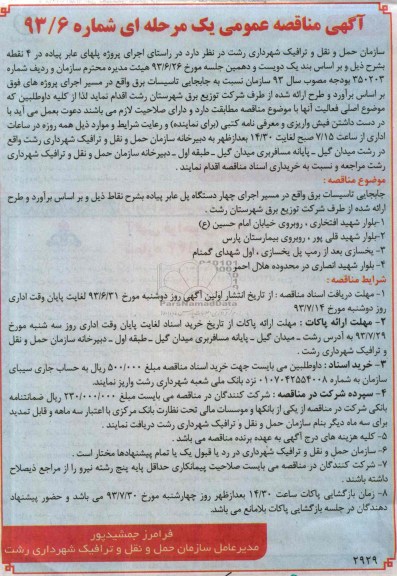 آگهی مناقصه عمومی یک مرحله ای شماره ۹۳/۶
سازمان حمل و نقل و ترافیک شهرداری رشت در نظر دارد در راستای اجرای پروژه پلهای عابر پیاده در ۴ نقطه
بشرح ذیل و بر اساس بند یک دویست و دهمین جلسه مورخ ۹۳/۶/۲۶ هیئت مدیره محترم سازمان و ردیف شماره
۳۵۰۲۰۳ بودجه مصوب سال ۹۳ سازمان نسبت به جابجایی تاسیسات برق واقع در مسیر اجرای پروژه های فوق
بر اساس برآورد و طرح ارائه شده از طرف شرکت توزیع برق شهرستان رشت اقدام نماید لذا از کلیه داوطلبین که
موضوع اصلی فعالیت آنها با موضوع مناقصه مطابقت دارد و دارای صلاحیت لازم می باشند دعوت بعمل می آید با
در دست داشتن فیش واریزی و معرفی نامه کتبی (برای نماینده) و رعایت شرایط و موارد ذیل همه روزه در ساعات
اداری از ساعت ۷/۱۵ صبح لغایت ۱۴/۳۰ بعدازظهر به دبیرخانه سازمان حمل و نقل و ترافیک شهرداری رشت واقع
در رشت میدان گیل ـ پایانه مسافربری میدان گیل ـ طبقه اول ـ دبیرخانه سازمان حمل و نقل و ترافیک شهرداری
رشت مراجعه و نسبت به خریداری اسناد مناقصه اقدام نمایند .
موضوع مناقصه :
جابجایی تاسیسات برق واقع در مسیر اجرای چهار دستگاه پل عابر پیاده بشرح نقاط ذیل و بر اساس برآورد و طرح
ارائه شده از طرف شرکت توزیع برق شهرستان رشت .
۱-بلوار شهید افتخاری ، روبروی خیابان امام حسین (ع)
۲-بلوار شهید قلی پور ، روبروی بیمارستان پارس
۳- یخسازی بعد از رمپ پل یخسازی ، اول شهدای گمنام
۴- بلوار شهید انصاری در محدوده هلال احمر
شرایط مناقصه :
۱- مهلت دریافت اسناد مناقصه : از تاریخ انتشار اولین آگهی روز دوشنبه مورخ ۹۳/۶/۳۱ لغایت پایان وقت اداری
روز دوشنبه مورخ ۹۳/۷/۱۴
۲- مهلت ارائه پاکات : مهلت ارائه پاکات از تاریخ خرید اسناد لغایت پایان وقت اداری روز سه شنبه مورخ
۹۳/۷/۲۹ به آدرس رشت ـ میدان گیل ـ پایانه مسافربری میدان گیل ـ طبقه اول ـ دبیرخانه سازمان حمل و نقل
و ترافیک شهرداری رشت .
۳- خرید اسناد : داوطلبین می بایست جهت خرید اسناد مناقصه مبلغ ۵۰۰/۰۰۰ ریال به حساب جاری سیبای
سازمان به شماره ۰۱۰۷۰۴۲۵۵۴۰۰۸ نزد بانک ملی شعبه شهرداری رشت واریز نمایند.
۴- سپرده شرکت در مناقصه : شرکت کنندگان در مناقصه می بایست مبلغ ۲۳۰/۰۰۰/۰۰۰ ریال ضمانتنامه
بانکی شرکت در مناقصه از یکی از بانکها و موسسات مالی تحت نظارت بانک مرکزی با اعتبار سه ماهه و قابل تمدید
برای سه ماه دیگر بنام سازمان حمل و نقل و ترافیک شهرداری رشت دریافت نمایند .
۵- کلیه هزینه های درج آگهی به عهده برنده مناقصه می باشد .
۶- سازمان حمل و نقل و ترافیک شهرداری در رد یا قبول یک یا تمام پیشنهادها مختار است .
۷- شرکت کنندگان در مناقصه می بایست صلاحیت پیمانکاری حداقل پایه پنج رشته نیرو را از مراجع ذیصلاح
داشته باشند .
۸- زمان بازگشایی پاکات ساعت ۱۴/۳۰ بعدازظهر روز چهارشنبه مورخ ۹۳/۷/۳۰ می باشد و حضور پیشنهاد
دهندگان در جلسه بازگشایی پاکات بلامانع می باشد.
فرامرز جمشیدپور
مدیرعامل سازمان حمل و نقل و ترافیک شهرداری رشت
۲۹۲۹